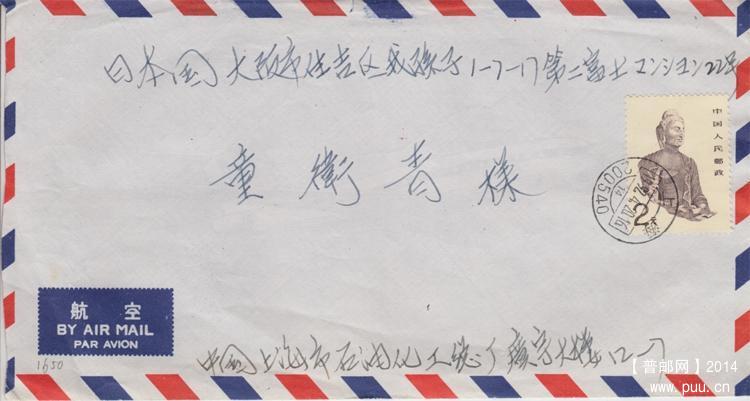 日本国大阪市住吉区我孫子1-7-17第二富士マンション22号
中国人民邮政
童衛青様
200540
2
航空
BY AIR MAIL
PAR AVION
1650
中国上海市石油化工总厂
【普邮网】2014
www.puu.cn